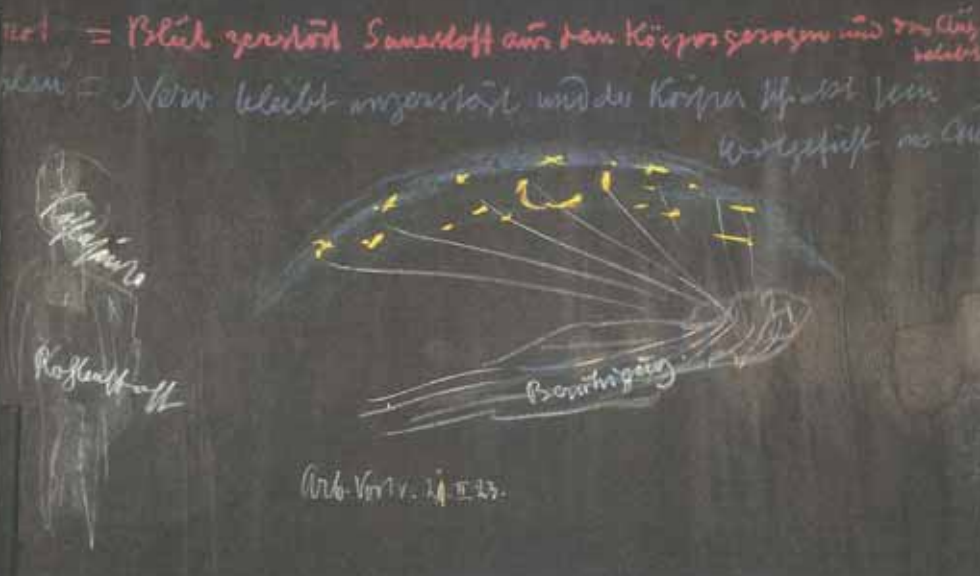 rot = Blut zerstört Sauerstoff aus dem Körper gesogen und das Aug
belebt
blau = Nerv bleibt unzerstört und der Körper schickt sein
Wohlgefühl ins
Kohlensäure
Kohlenstoff
Beruhigung
Arb. Vortr. 21. II 23.